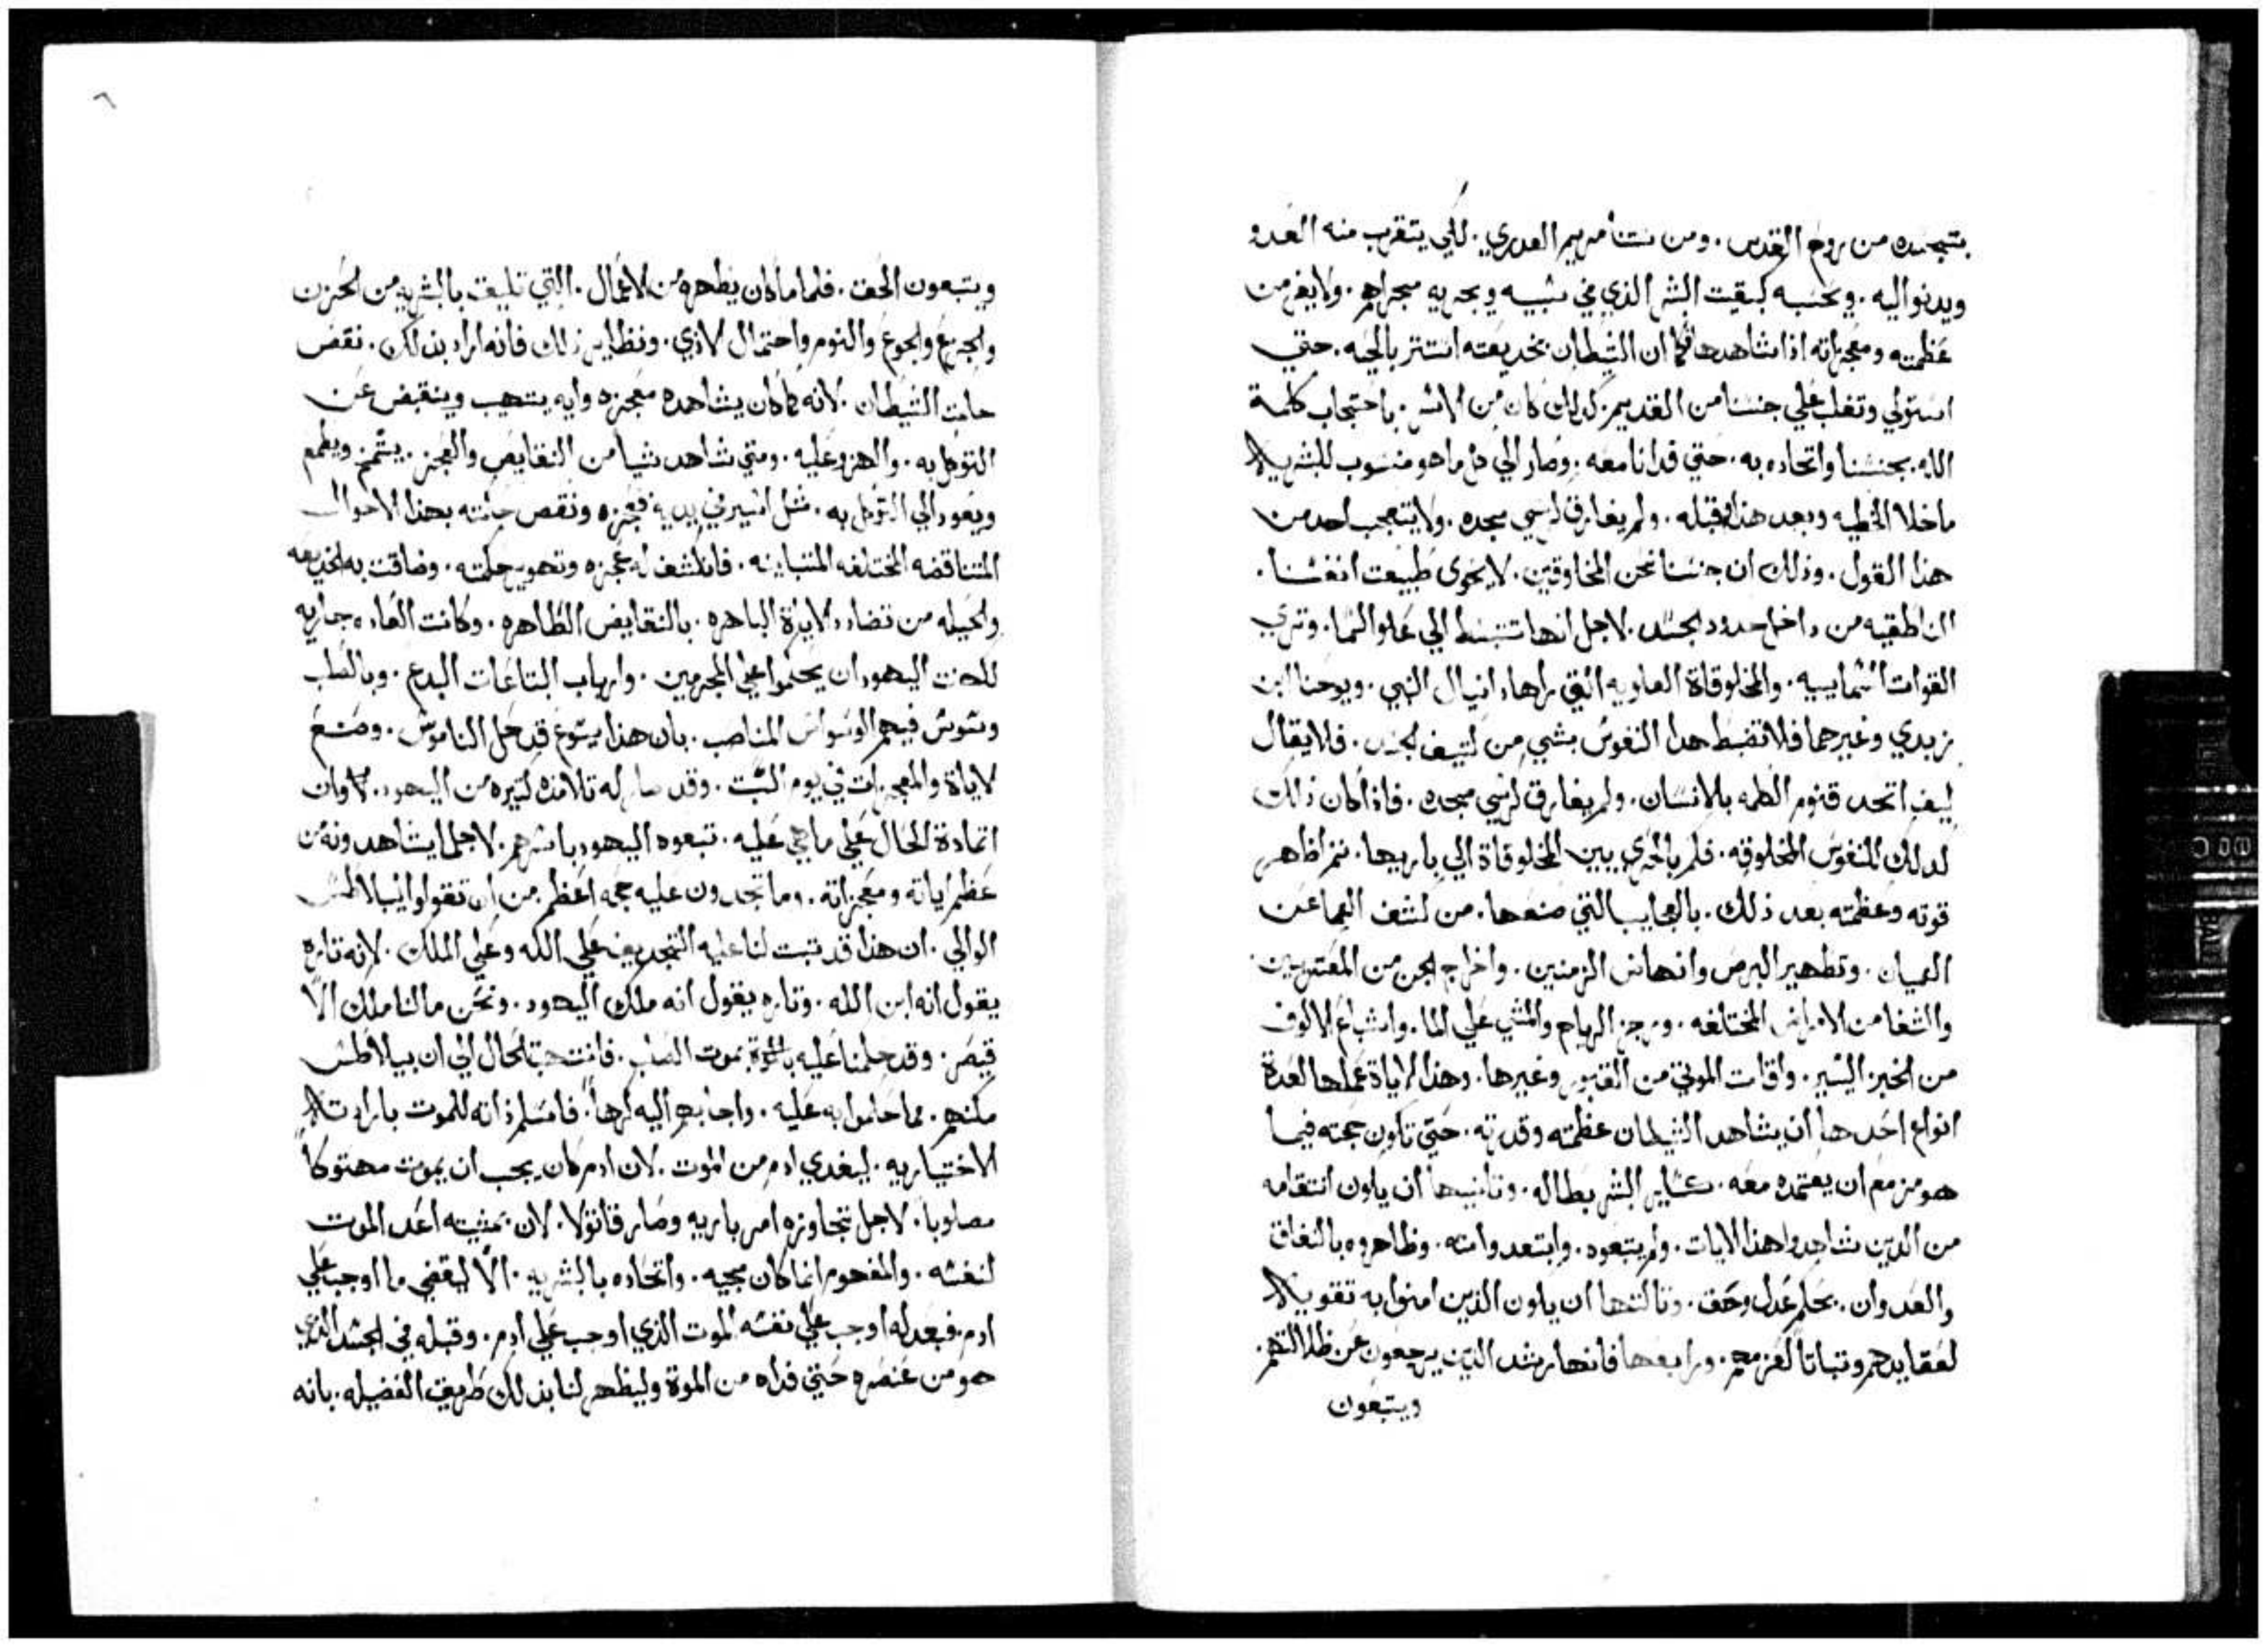 بتجسده من روح القدس . ومن ستنا مريم العدري . لكي يتقرب منه العدو
ويدنوا اليه . ويحسبه كبقت البشر الذي في سبيه ويجريه مجراهم . ولا يفر من
عظمته ومعجزاته اذا شاهدها كما ان الشيطان بخديعته استتر بالحيه . حتي
استولي وتغلب علي جنسنا من القديم كدلك كان من الاسر . باحتجاب كلمة
الله بجنسنا واتحاده به . حتي فدانا معه . وصار الي كل ما هو منسوب للبشريه
ما خلا الخطيه وبعد هذا وقبله . ولم يفارق كرسي مجده . ولا يتعجب احد من
هذا القول . وذلك ان جنسنا نحن المخلوقين . لا يحوي طبيعت انفسنا .
الناطقيه من داخل حدود الجسد . لاجل انها تنبسط الي علو السما . وتري
القوات السماييه . والمخلوقاة العلويه التي راها دانيال النبي . ويوحنا ابن
زبدي وغيرهما فلا تضبط هدا النفوس بشي من كتيف الجسد . فلا يقال
كيف اتحد قنوم الكلمه بالانسان . ولم يفارق كرسي مجده . فاذا كان ذلك
كدلك للنفوس المخلوقه . فكم بالحري يبين المخلوقاة الي باريها . تم اظاهر
قوته وعظمته بعد ذلك . بالعجايب التي صنعها . من كشف العما عن
العميان . وتطهير البرص وانهاض الزمنين . واخراج الجن من المعترين
والشفا من الامراض المختلفه . وزجر الرياح والمشي علي الما . واشباع الالوف
من الخبز اليسير . واقامت الموتي من القبور وغيرها . وهذا الاياة عملها لعدة
انواع احدها ان يشاهد الشيطان عظمته وقدرته . حتي تكون حجته فيما
هو مزمع ان يعتمده معه . كساير البشر بطاله . وتانيها ان يكون انتقامه
من الدين شاهدوا هذا الايات . ولم يتبعوه . وابتعدوا منه . وظاهروه بالنفاق
والعدوان . بحكم عدل وحق . وتالتها ان يكون الذين امنوا به تقويه
لعقايدهم وتباتاً لعزمهم . ورابعها فانها رشد الدين يرجعون عن ظلالتهم .
ويتبعون
٦
ويتبعون الحق . فلما ما كان يظهره من الاعمال . التي تليق بالبشريه من الحزن
والجزع والجوع والنوم واحتمال الاذي . ونظاير ذلك فانه اراد بذلك . نقض
حكمت الشيطان . لانه كما كان يشاهده معجزه وايه يتهيب وينقبض عن
التوكل به . والهزو عليه . ومتي شاهد شيا من النقايص والعجز . يشمخ ويطمع
ويعود الي التوكل به . متل اسير في يديه فعجزه ونقص حكمته بهذا الاحوال
المتناقضه المختلفه المتباينه . فانكشف له عجزه وتهوير حكمته . وضاقت به الخديعه
والحيله من تضادد الاياة الباهره . بالنقايص الظاهره . وكانت العاده جاريه
لكهنت اليهود ان يحكموا علي المجرمين . وارباب البتاعات البدع . وبالصلب
وشوش فيهم الوسواس المناصب . بان هذا يسوع قد حل الناموس . وصنع
الاياة والمعجزات في يوم السبت . وقد صار له تلامذه كتيره من اليهود . لاوان
اتمادة الحال علي ما هي عليه . تبعوه اليهود باسرهم . لاجل ما يشاهدونه من
عظم اياته ومعجزاته . وما تجدون عليه حجه اعظم من ان تقولوا لبيلاطس
الوالي . ان هذا قد تبت لنا عليه التجديف علي الله وعلي الملك . لانه تاره
يقول انه ابن الله . وتاره يقول انه ملك اليهود . ونحن ما لنا ملك الا
قيصر . وقد حكمنا عليه بالموة بموت الصلب . فانتهت الحال الي ان بيلاطس
مكنهم . مما حكموا به عليه . واجابهم اليه كرهاً . فاسلم ذاته للموت بارادته
الاختياريه . ليفدي ادم من الموت . لان ادم كان يجب ان يموت مهتوكاً
مصلوباً . لاجل تجاوزه امر باريه وصار قاتولا . لان بمشيته اعد الموت
لنفسه . والمفهوم انما كان مجيه . واتحاده بالبشريه . الا ليقضي ما اوجب علي
ادم . فبعدله اوجب علي نفسه الموت الذي اوجب علي ادم . وقبله في الجسد الذي
هو من عنصره حتي فداه من الموة وليظهر لنا بذلك طريق الفضيله . بانه